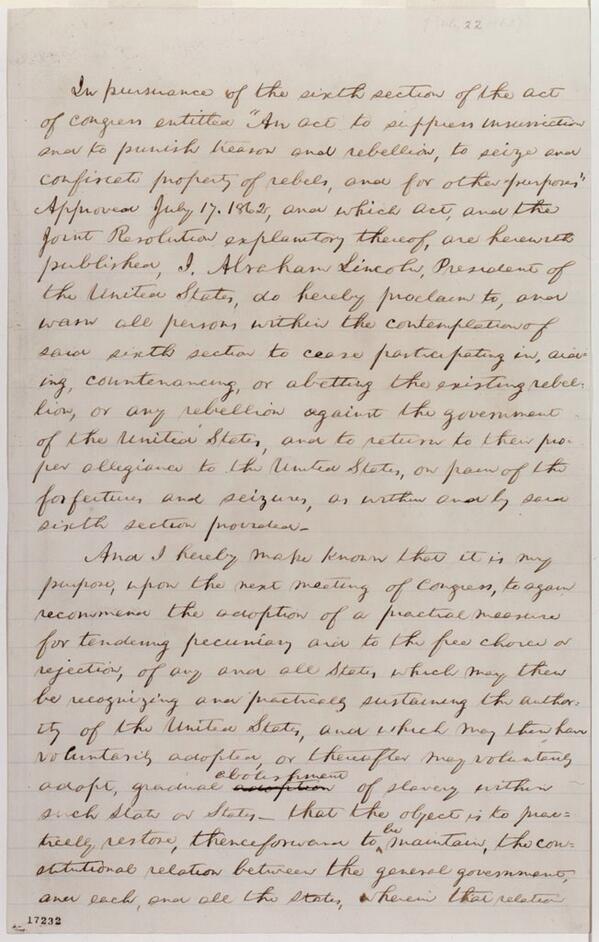 22
In pursuance of the sixth section of the act
of congress entitled "An act to suppress insurrection
and to punish treason and rebellion, to seize and
confiscate property of rebels, and for other purposes"
Approved July 17. 1862, and which act, and the
Joint Resolution explanatory thereof, are herewith
published, I, Abraham Lincoln, President of
the United States, do hereby proclaim to, and
warn all persons within the contemplation of
said sixth section to cease participating in, aid-
ing, countenancing, or abetting the existing rebel-
lion, or any rebellion against the government
of the United States, and to return to their pro-
per allegiance to the United States, on pain of the
forfeitures and seizures, as within and by said
sixth section provided—
And I hereby make known that it is my
purpose, upon the next meeting of Congress, to again
recommend the adoption of a practical measure
for tendering pecuniary aid to the free choice or
rejection, of any and all States which may then
be recognizing and practically sustaining the author-
ity of the United States, and which may then have
voluntarily adopted, or thereafter may voluntarily
abolishment
adopt, gradual adoption of slavery within
such State or States— that the object is to prac-
tically restore, thenceforward to be maintain, the con-
stitutional relation between the general government,
and each, and all the States, wherein that relation
17232